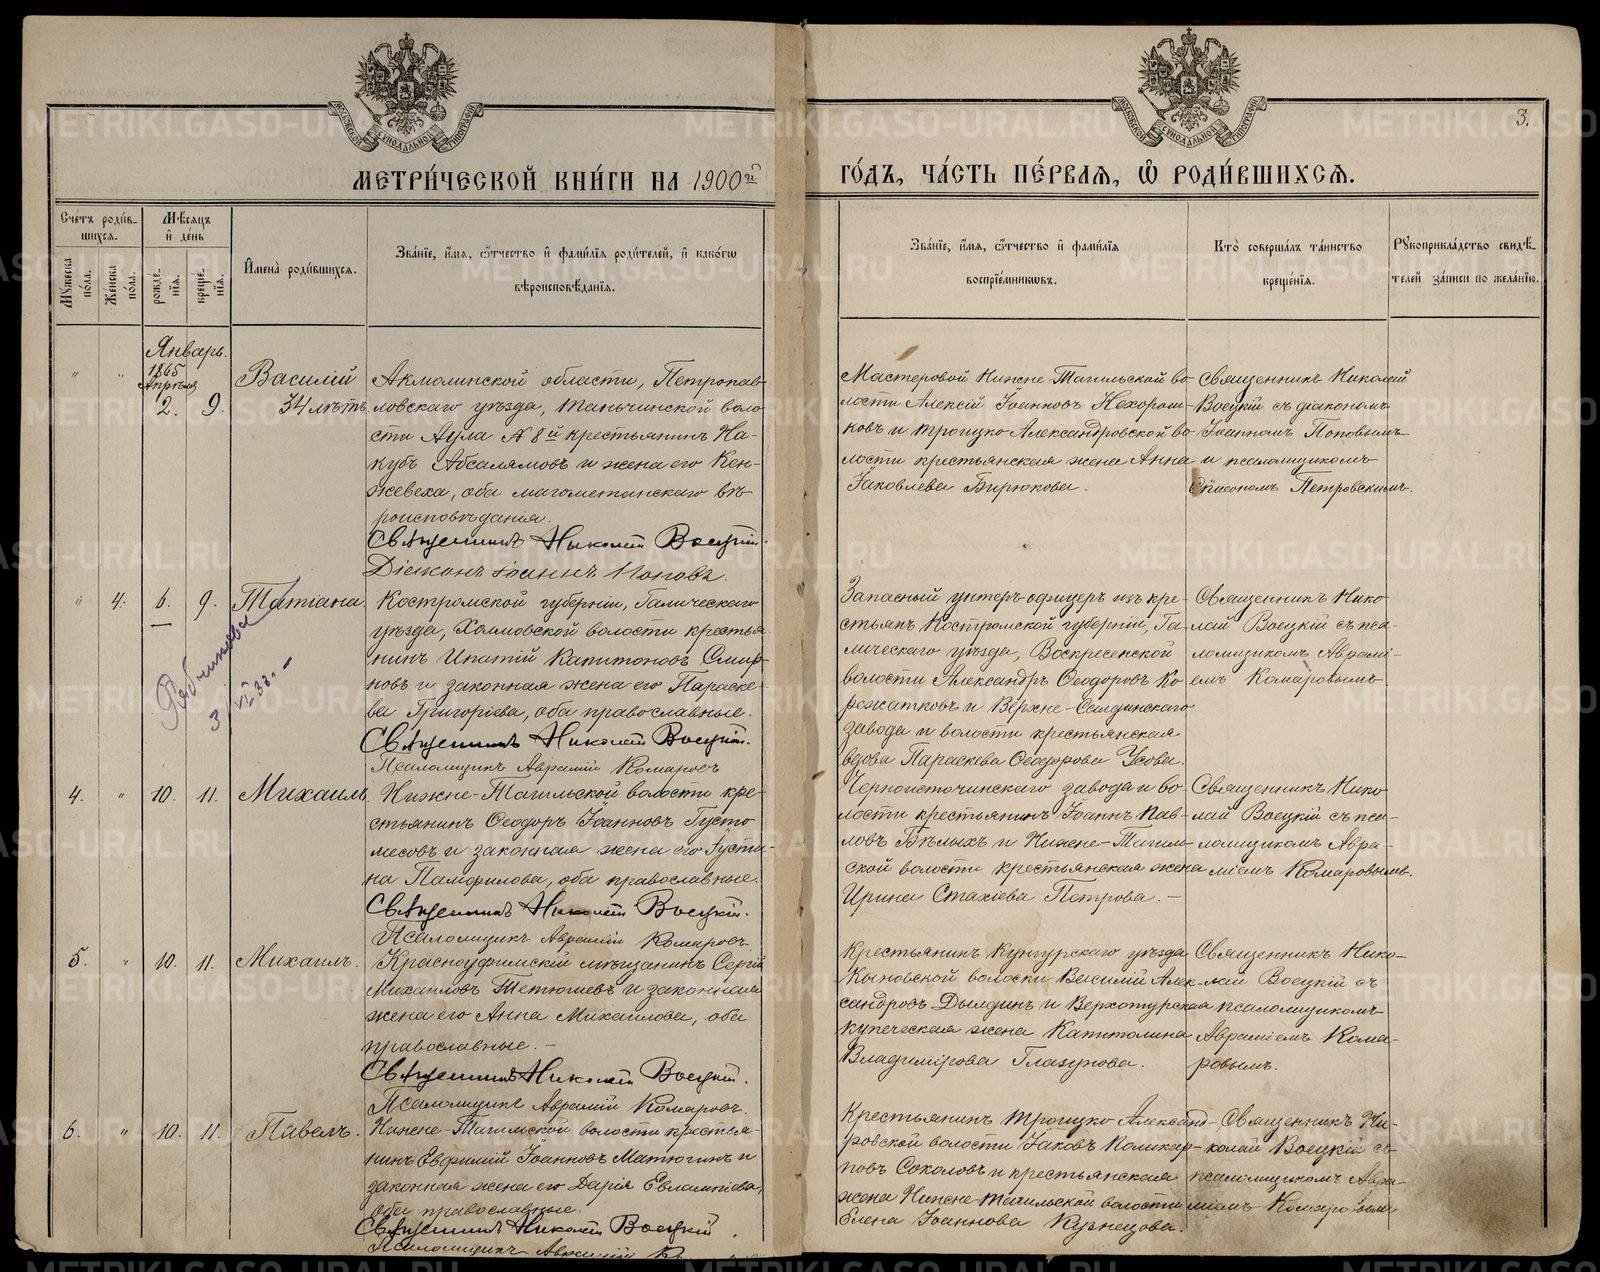 МОСКОВСКОЙ СИНОДАЛЬНОЙ ТИПОГРАФІИ
МОСКОВСКОЙ СИНОДАЛЬНОЙ ТИПОГРАФІИ
3.
МЕТРИ́ЧЕСКОЙ КНИ́ГИ НА 1900й
ГО́ДЪ, ЧА́СТЬ ПЕ́РВАѦ, Ѽ РОДИ́ВШИХСѦ.
Сче́тъ роди́в-
шихся.
Мꙋжеска по́ла.
Женска по́ла.
Мѣ́сяцъ
и҆ де́нь
рожде́нїя.
креще́нїя.
И҆мена̀ роди́вшихся.
Зва́нїе, и҆́мя, ѻ҆́тчество и҆ фамилїя роди́телей, и҆ како́гѡ
вѣроисповѣ́данїя.
Зва́нїе, и҆́мя, ѻ҆́тчество и҆ фами́лїя
воспрїе́мникѡвъ.
Кто̀ соверша́лъ та́инство
креще́нїя.
Рꙋкоприкла́дство свидѣ́-
телей за́писи по жела́нїю.
Январь.
1865
Апрѣля
" " 2. 9.
Василій
34 лѣтъ
Акмолинской области, Петропав-
ловскаго уѣзда, Таньчинской воло
сти Аула № 8й крестьянинъ На-
кубъ Абсалямовъ и жена его Кен-
жевеха, оба магометанскаго вѣ-
роисповѣданія.
Священникъ Николай Воецкій.
Діаконъ Іоаннъ Поповъ.
Мастеровой Нижне-Тагильской во
лости Алексій Іоанновъ Нехорош-
ковъ и Троицко-Александровской во
лости крестьянская жена Анна
Іаковлева Бирюкова.
Священникъ Николай
Воецкій съ діакономъ
Іоанномъ Поповымъ
и псаломщикомъ
Петровскимъ.
" 4. 6. 9.
Татіана
3/VI 33. –
Костромской губерніи, Галическаго
уѣзда, Холмовской волости крестья
нинъ Ипатій Капитоновъ Смир-
новъ и законная жена его Параске-
ва Григоріева, оба православные.
Священникъ Николай Воецкій.
Псаломщикъ Аврамій Комаровъ
Запасный унтеръ-офицеръ изъ кре-
стьянъ Костромской губерніи, Га-
лическаго уѣзда, Воскресенской
волости Александръ Ѳеодоровъ Ко-
режатковъ и Верхне-Салдинскаго
завода и волости крестьянская
вдова Параскева Ѳеодорова Усова.
Священникъ Нико
лай Воецкій съ пса-
ломщикомъ Аврамі-
емъ Комаровымъ
4. " 10. 11.
Михаилъ.
Нижне-Тагильской волости кре-
стьянинъ Ѳеодоръ Іоанновъ Густо
месовъ и законная жена его Іусти-
на Памфилова, оба православные.
Священникъ Николай Воецкій.
Псаломщикъ Аврамій Комаровъ
Черноисточинскаго завода и во-
лости крестьянинъ Іоаннъ Пав-
ловъ Бѣлыхъ и Нижне-Тагиль-
ской волости крестьянская жена
Ирина Стахіева Петрова. –
Священникъ Нико
лай Воецкій съ пса-
ломщикомъ Авра-
міемъ Комаровымъ.
5. " 10. 11.
Михаилъ.
Красноуфимскій мѣщанинъ Сергій
Михаиловъ Тетюшевъ и законная
жена его Анна Михаилова, оба
православные. –
Священникъ Николай Воецкій.
Псаломщикъ Аврамій Комаровъ.
Крестьянинъ Кунгурскаго уѣзда
Кыновской волости Василій Алек-
сандровъ Дылдинъ и Верхотурская
купеческая жена Капитолина
Владимірова Глазунова.
Священникъ Нико-
лай Воецкій съ
псаломщикомъ
Авраміемъ Кома-
ровымъ.
6. " 10. 11.
Павелъ.
Нижне-Тагильской волости крестья-
нинъ Евфимій Іоанновъ Матюгинъ и
законная жена его Дарія Евлампіева,
оба православные.
Священникъ Николай Воецкій.
Псаломщикъ Аврамій
Крестьянинъ Троицко-Александ-
ровской волости Іаковъ Поликар-
повъ Соколовъ и крестьянская
жена Нижне-Тагильской волости
Елена Іоаннова Кузнецова.
Священникъ Ни-
колай Воецкій съ
псаломщикомъ Авра-
міемъ Комаровымъ
METRIKI.GASO-URAL.RU